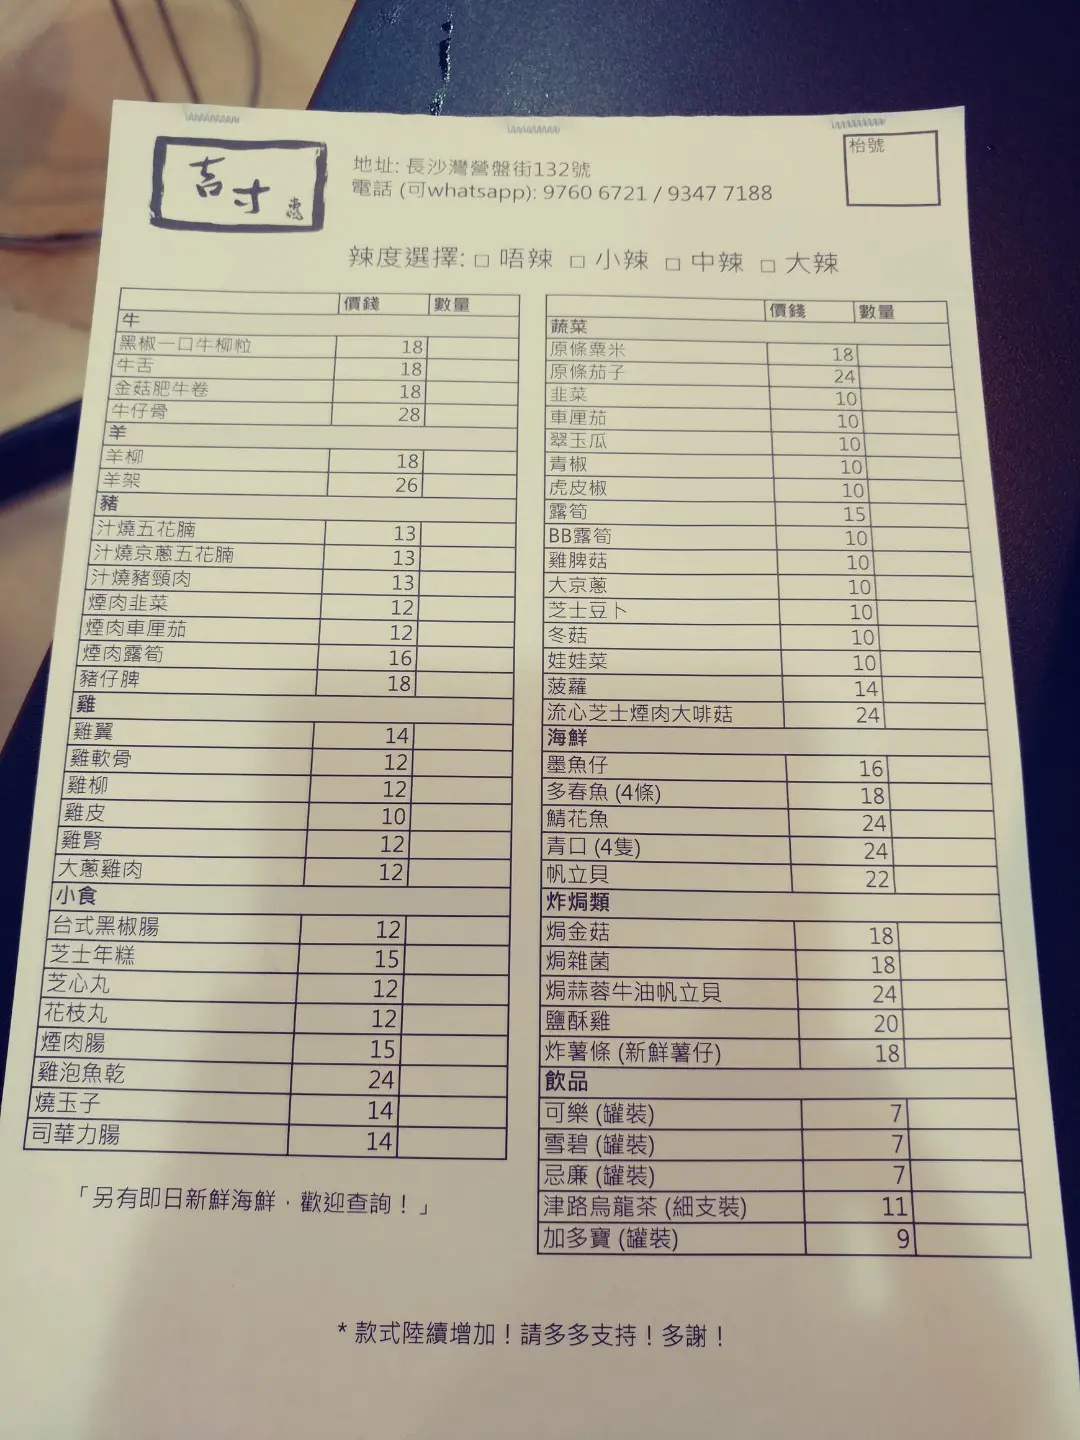 吉寸
地址: 長沙灣營盤街132號
電話 (可whatsapp): 9760 6721 / 9347 7188
枱號
辣度選擇: □ 唔辣 □ 小辣 □ 中辣 □ 大辣
價錢 數量
牛
黑椒一口牛柳粒 18
牛舌 18
金菇肥牛卷 18
牛仔骨 28
羊
羊柳 18
羊架 26
豬
汁燒五花腩 13
汁燒京蔥五花腩 13
汁燒豬頸肉 13
煙肉韭菜 12
煙肉車厘茄 12
煙肉露筍 16
豬仔脾 18
雞
雞翼 14
雞軟骨 12
雞柳 12
雞皮 10
雞腎 12
大蔥雞肉 12
小食
台式黑椒腸 12
芝士年糕 15
芝心丸 12
花枝丸 12
煙肉腸 15
雞泡魚乾 24
燒玉子 14
司華力腸 14
「另有即日新鮮海鮮，歡迎查詢！」
價錢 數量
蔬菜
原條粟米 18
原條茄子 24
韭菜 10
車厘茄 10
翠玉瓜 10
青椒 10
虎皮椒 10
露筍 15
BB露筍 10
雞脾菇 10
大京蔥 10
芝士豆卜 10
冬菇 10
娃娃菜 10
菠蘿 14
流心芝士煙肉大啡菇 24
海鮮
墨魚仔 16
多春魚 (4條) 18
鯖花魚 24
青口 (4隻) 24
帆立貝 22
炸焗類
焗金菇 18
焗雜菌 18
焗蒜蓉牛油帆立貝 24
鹽酥雞 20
炸薯條 (新鮮薯仔) 18
飲品
可樂 (罐裝) 7
雪碧 (罐裝) 7
忌廉 (罐裝) 7
津路烏龍茶 (細支裝) 11
加多寶 (罐裝) 9
* 款式陸續增加！請多多支持！多謝！